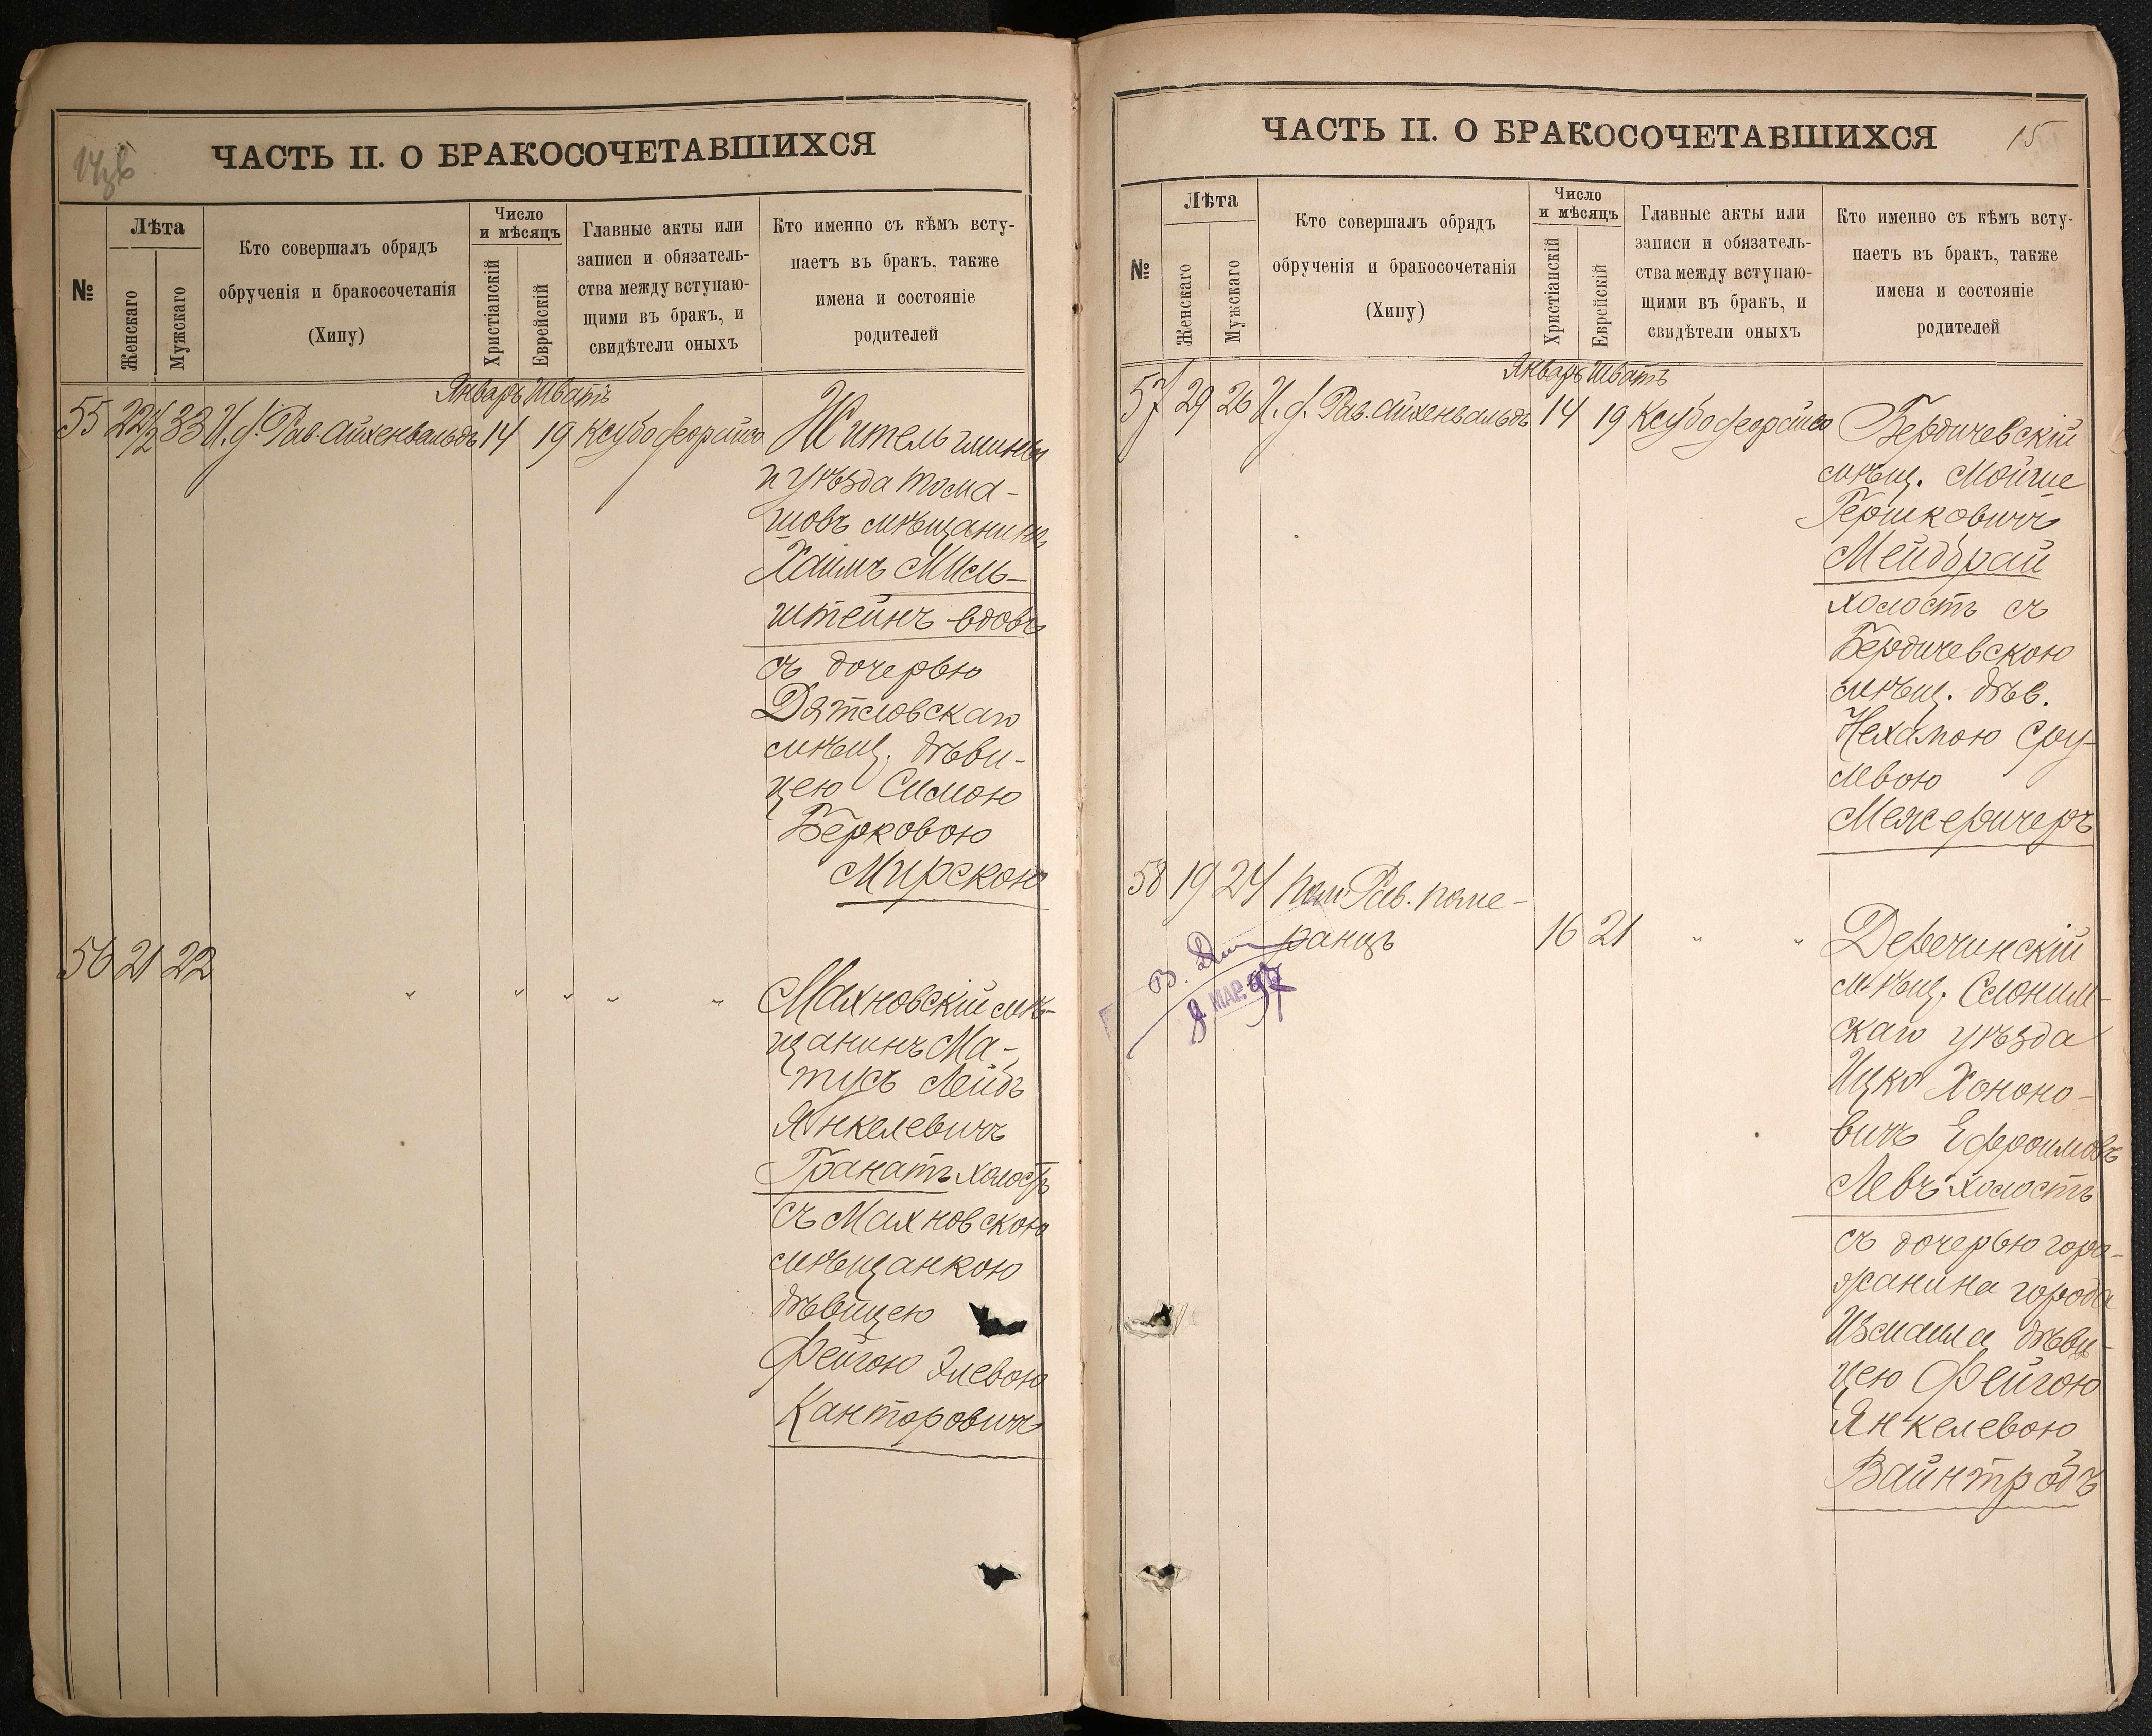 ЧАСТЬ II. О БРАКОСОЧЕТАВШИХСЯ
№
Лѣта
Женскаго
Мужскаго
Кто совершалъ обрядъ
обрученія и бракосочетанія
(Хипу)
Число
и мѣсяцъ
Христіанскій
Еврейскій
Главные акты или
записи и обязатель-
ства между вступаю-
щими въ бракъ, и
свидѣтели оныхъ
Кто именно съ кѣмъ всту-
паетъ въ бракъ, также
имена и состояніе
родителей
Январь Шватъ
55 22 1/2 33 И. ф. Рав. Айхенвальдъ 14 19 Ксубо деорайсо
Житель гмины
и уѣзда Тома-
шовъ мѣщанинъ
Хаимъ Миль-
штейнъ вдовъ
съ дочерью
Дятловскаго
мѣщ. дѣви-
цею Симою
Берковою
Мирскою
56 21 22 " " " " "
Махновскій мѣ-
щанинъ Ма-
тусъ Лейбъ
Янкелевичъ
Гранатъ холостъ
съ Махновскою
мѣщанкою
дѣвицею
Фейгою Элевою
Канторовичъ
ЧАСТЬ II. О БРАКОСОЧЕТАВШИХСЯ
15
№
Лѣта
Женскаго
Мужскаго
Кто совершалъ обрядъ
обрученія и бракосочетанія
(Хипу)
Число
и мѣсяцъ
Христіанскій
Еврейскій
Главные акты или
записи и обязатель-
ства между вступаю-
щими въ бракъ, и
свидѣтели оныхъ
Кто именно съ кѣмъ всту-
паетъ въ бракъ, также
имена и состояніе
родителей
Январь Шватъ
57 29 26 И. ф. Рав. Айхенвальдъ 14 19 Ксубо деорайсо
Бердичевскій
мѣщ. Мойше
Гершковичъ
Мейдбрай
холостъ съ
Бердичевскою
мѣщ. дѣв.
Нехамою Сру-
левою
Межеричеръ
58 19 24 Пом. Рав. Поме-
ранцъ 16 21 " "
8 МАР. 97
Деречинскій
мѣщ. Слоним-
скаго уѣзда
Ицко Хононо-
вичъ Ефроимовъ
Левъ холостъ
съ дочерью горо-
жанина города
Измаила дѣви-
цею Фейгою
Янкелевою
Вайнтробъ